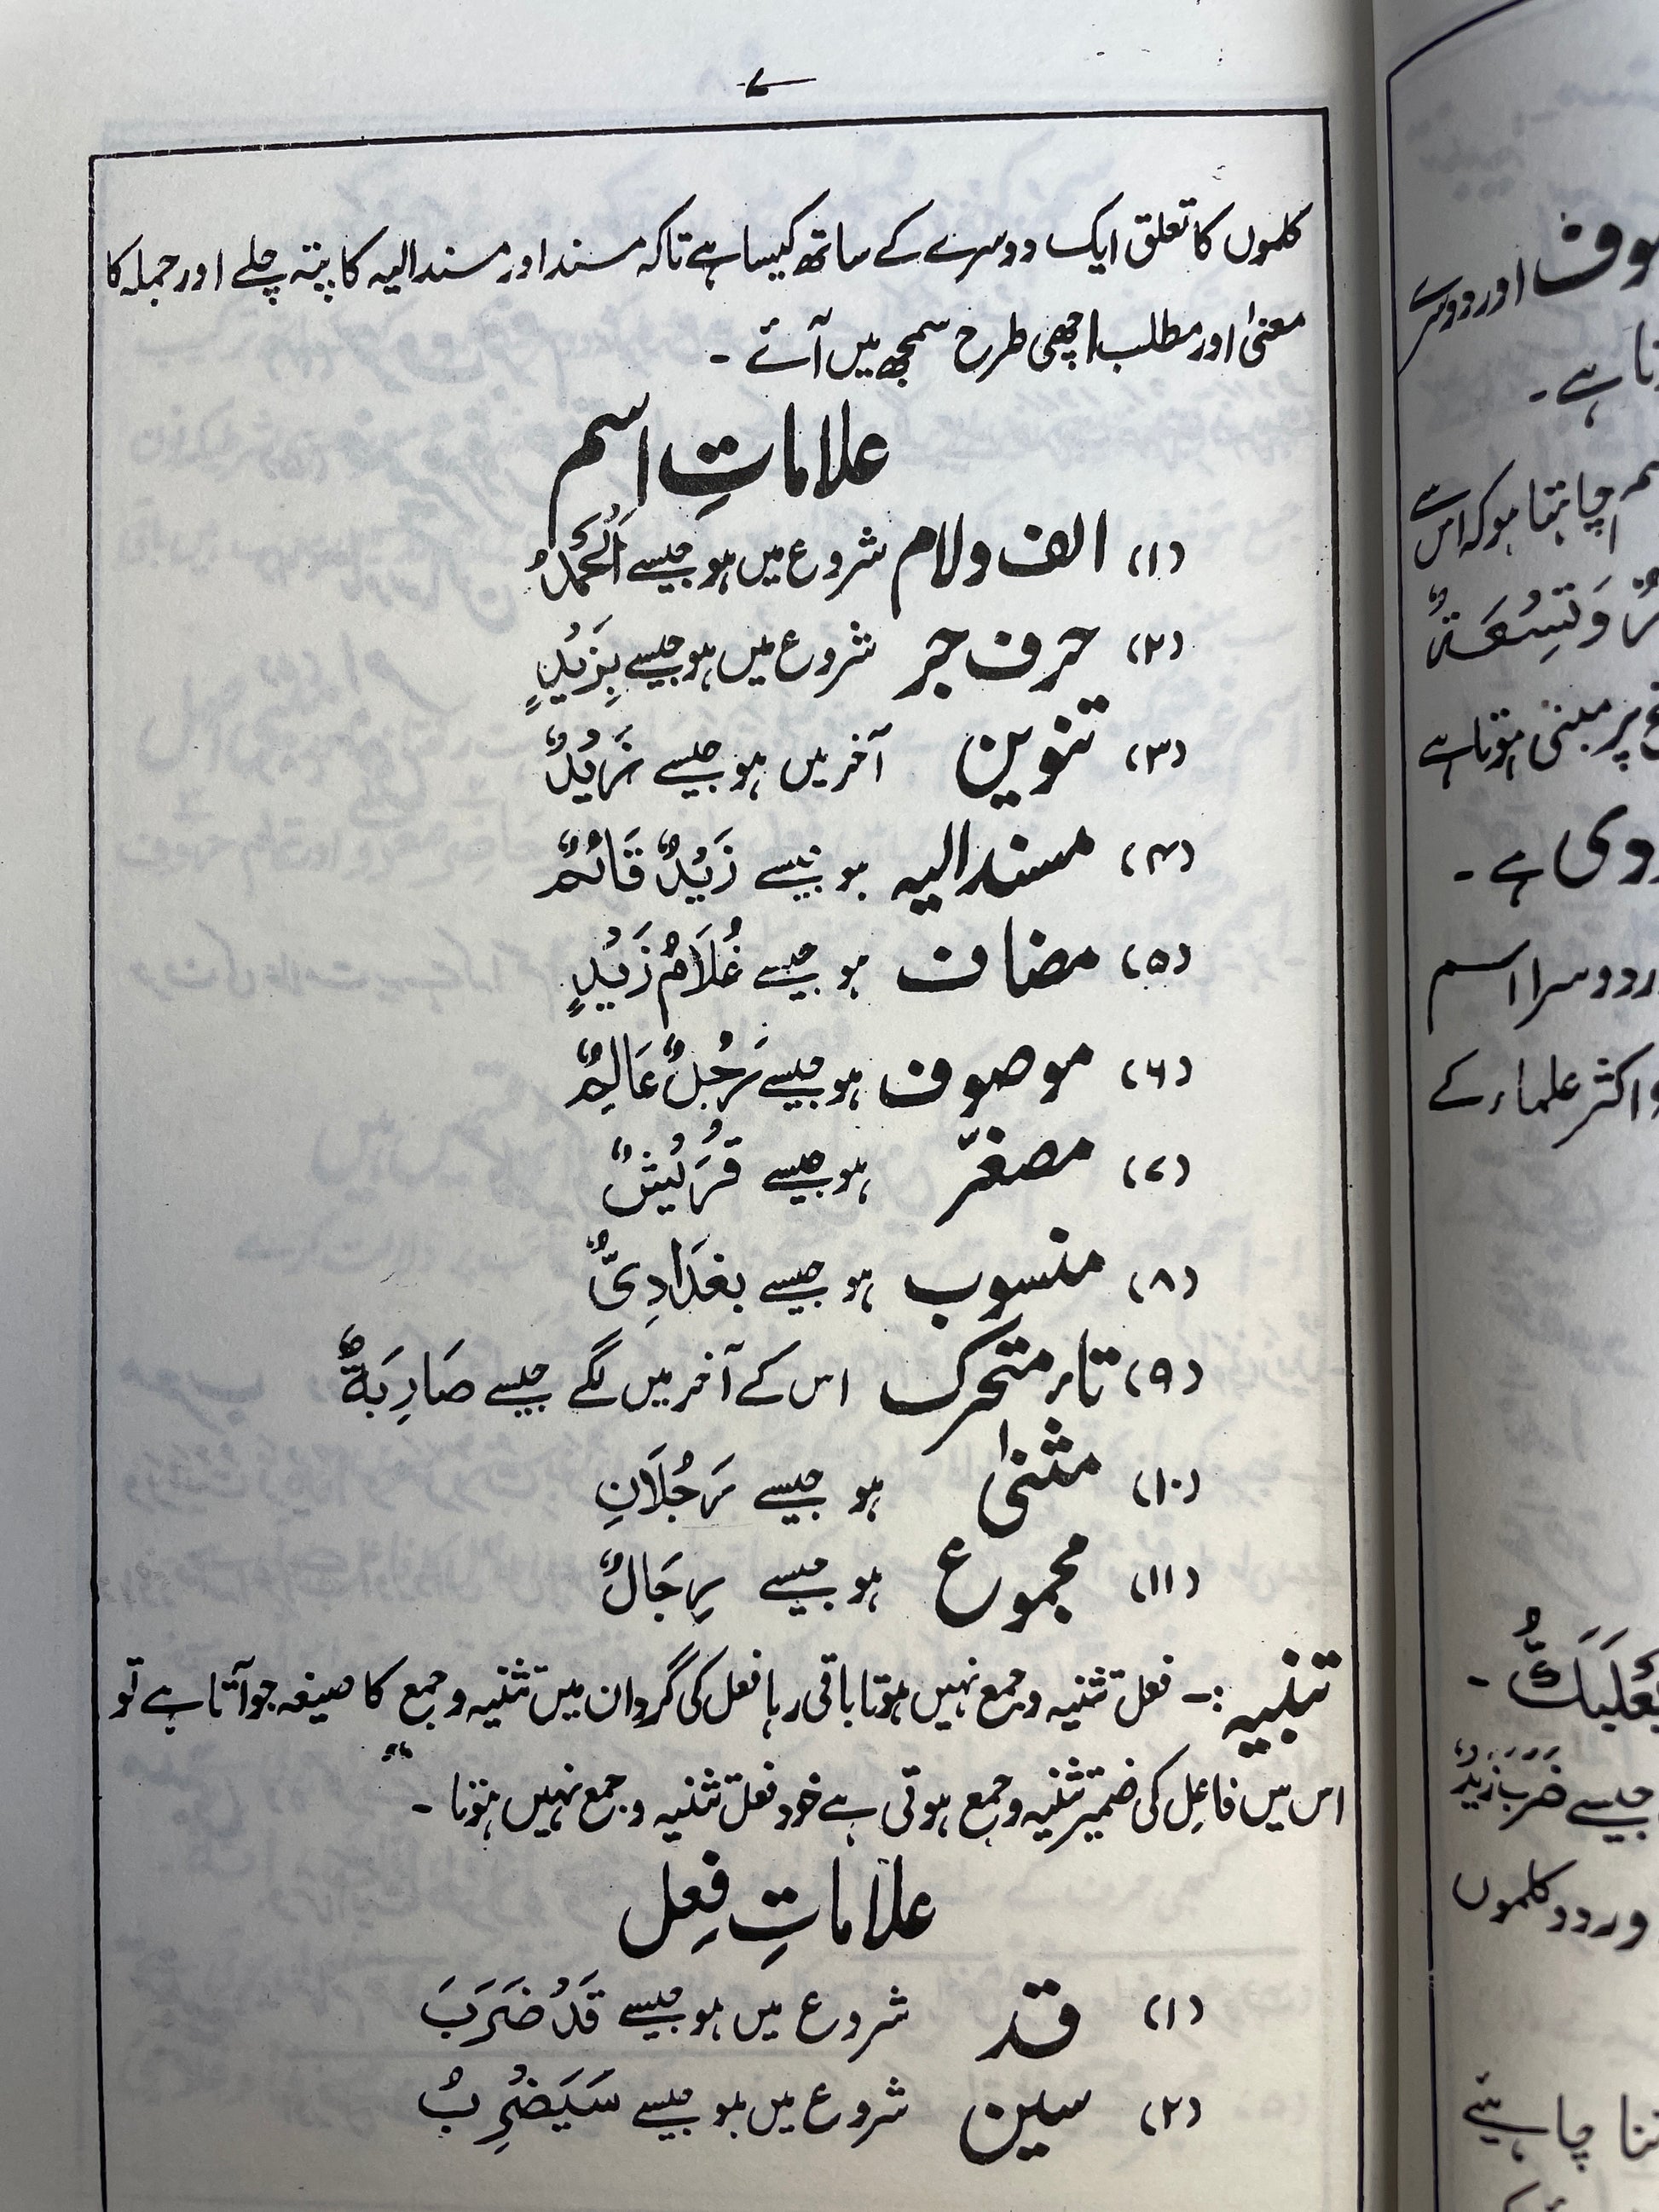 ۷
کلموں کا تعلق ایک دوسرے کے ساتھ کیسا ہے تاکہ مسند اور مسند الیہ کا پتہ چلے اور جملہ کا
معنیٰ اور مطلب اچھی طرح سمجھ میں آئے ۔
علاماتِ اسم
(۱) الف ولام شروع میں ہو جیسے اَلْحَمْدُ
(۲) حرف جر شروع میں ہو جیسے بِزَیْدٍ
(۳) تنوین آخر میں ہو جیسے زَیْدٌ
(۴) مسند الیہ ہو جیسے زَیْدٌ قَائمٌ
(۵) مضاف ہو جیسے غُلَامُ زَیْدٍ
(۶) موصوف ہو جیسے رَجُلٌ عَالِمٌ
(۷) مصغّر ہو جیسے قُرَیْشٌ
(۸) منسوب ہو جیسے بغدَادِیٌّ
(۹) تاء متحرک اس کے آخر میں لگے جیسے ضَارِبَةٌ
(۱۰) مثنیٰ ہو جیسے رَجُلَانِ
(۱۱) مجموع ہو جیسے رِجَالٌ
تنبیہ :۔ فعل تثنیہ و جمع نہیں ہوتا باقی رہا فعل کی گردان میں تثنیہ و جمع کا صیغہ جو آتا ہے تو
اس میں فاعِل کی ضمیر تثنیہ و جمع ہوتی ہے خود فعل تثنیہ و جمع نہیں ہوتا ۔
علاماتِ فِعل
(۱) قد شروع میں ہو جیسے قَدْ ضَرَبَ
(۲) سین شروع میں ہو جیسے سَیَضْرِبُ
اور دوسرے
ہے ۔
چاہتا ہو کہ اس سے
وَتِسْعَةٌ
پر مبنی ہوتا ہے
ہے ۔
دوسرا اسم
اکثر علماء کے
جیسے ضَرَبَ زَیْدٌ
دو کلموں
چاہئیے